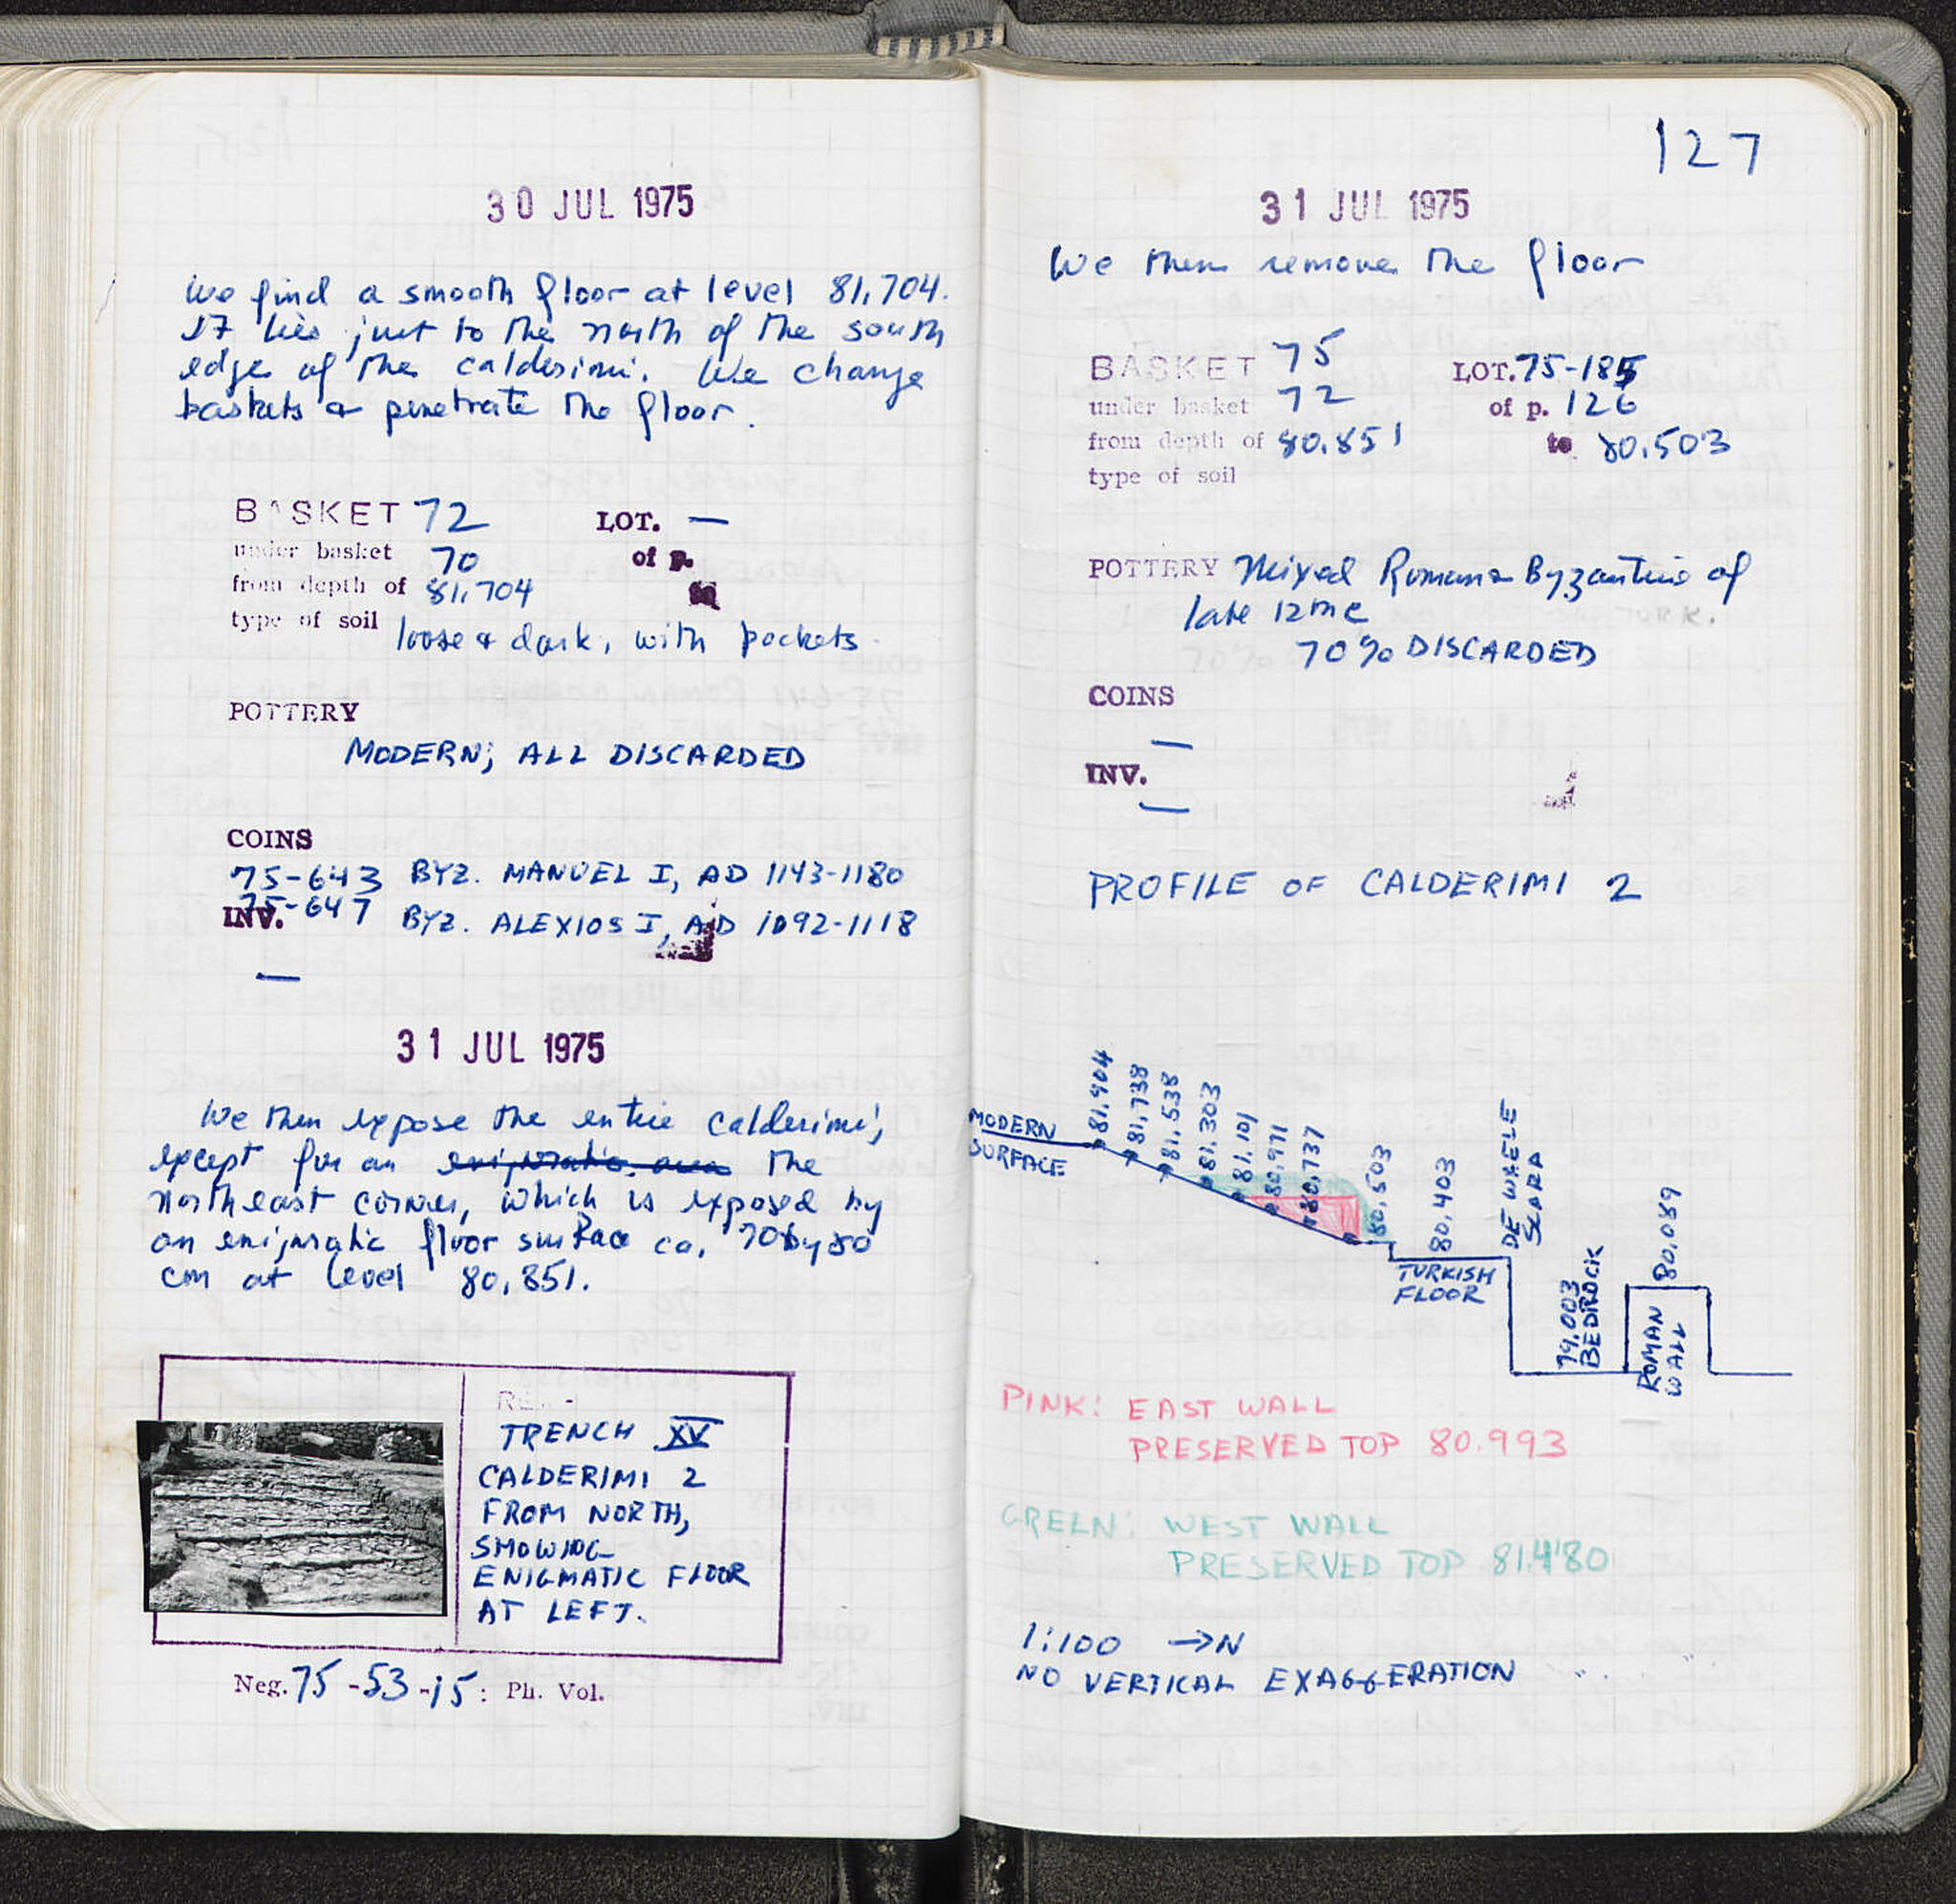 30 JUL 1975
We find a smooth floor at level 81,704.
It lies just to the north of the south
edge of the calderimi. We change
baskets & penetrate the floor.
BASKET 72 LOT. —
under basket 70 of p.
from depth of 81,704
type of soil loose & dark, with pockets
POTTERY
MODERN; ALL DISCARDED
COINS
75-643 BYZ. MANUEL I, AD 1143-1180
75-647 BYZ. ALEXIOS I, AD 1092-1118
INV.
—
31 JUL 1975
We then expose the entire calderimi,
except for an enigmatic area the
northeast corner, which is exposed by
an enigmatic floor surface ca. 70 by 50
cm at level 80,851.
TRENCH XV
CALDERIMI 2
FROM NORTH,
SHOWING
ENIGMATIC FLOOR
AT LEFT.
Neg. 75-53-15: Ph. Vol.
127
31 JUL 1975
We then remove the floor
BASKET 75 LOT. 75-185
under basket 72 of p. 126
from depth of 80.851 to 80.503
type of soil
POTTERY Mixed Roman & Byzantine of
late 12th c
70% DISCARDED
COINS
—
INV.
—
PROFILE OF CALDERIMI 2
MODERN
SURFACE
81,904
81,738
81,538
81,303
81,101
80,971
80,737
80,503
80,403
TURKISH
FLOOR
DE WAELE
SCARP
79.003
BEDROCK
ROMAN
WALL
80,089
PINK: EAST WALL
PRESERVED TOP 80.993
GREEN: WEST WALL
PRESERVED TOP 81.480
1:100 →N
NO VERTICAL EXAGGERATION